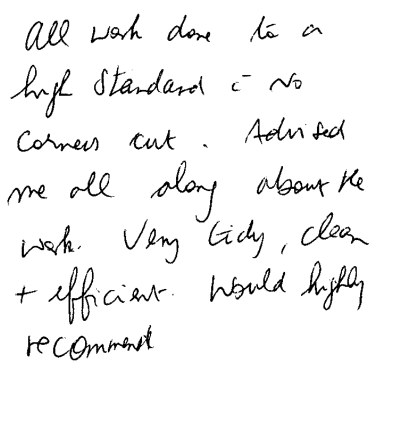 All work done to a
high standard c̄ No
corners cut. Advised
me all along about the
work. Very tidy, clean
+ efficient. Would highly
recommend